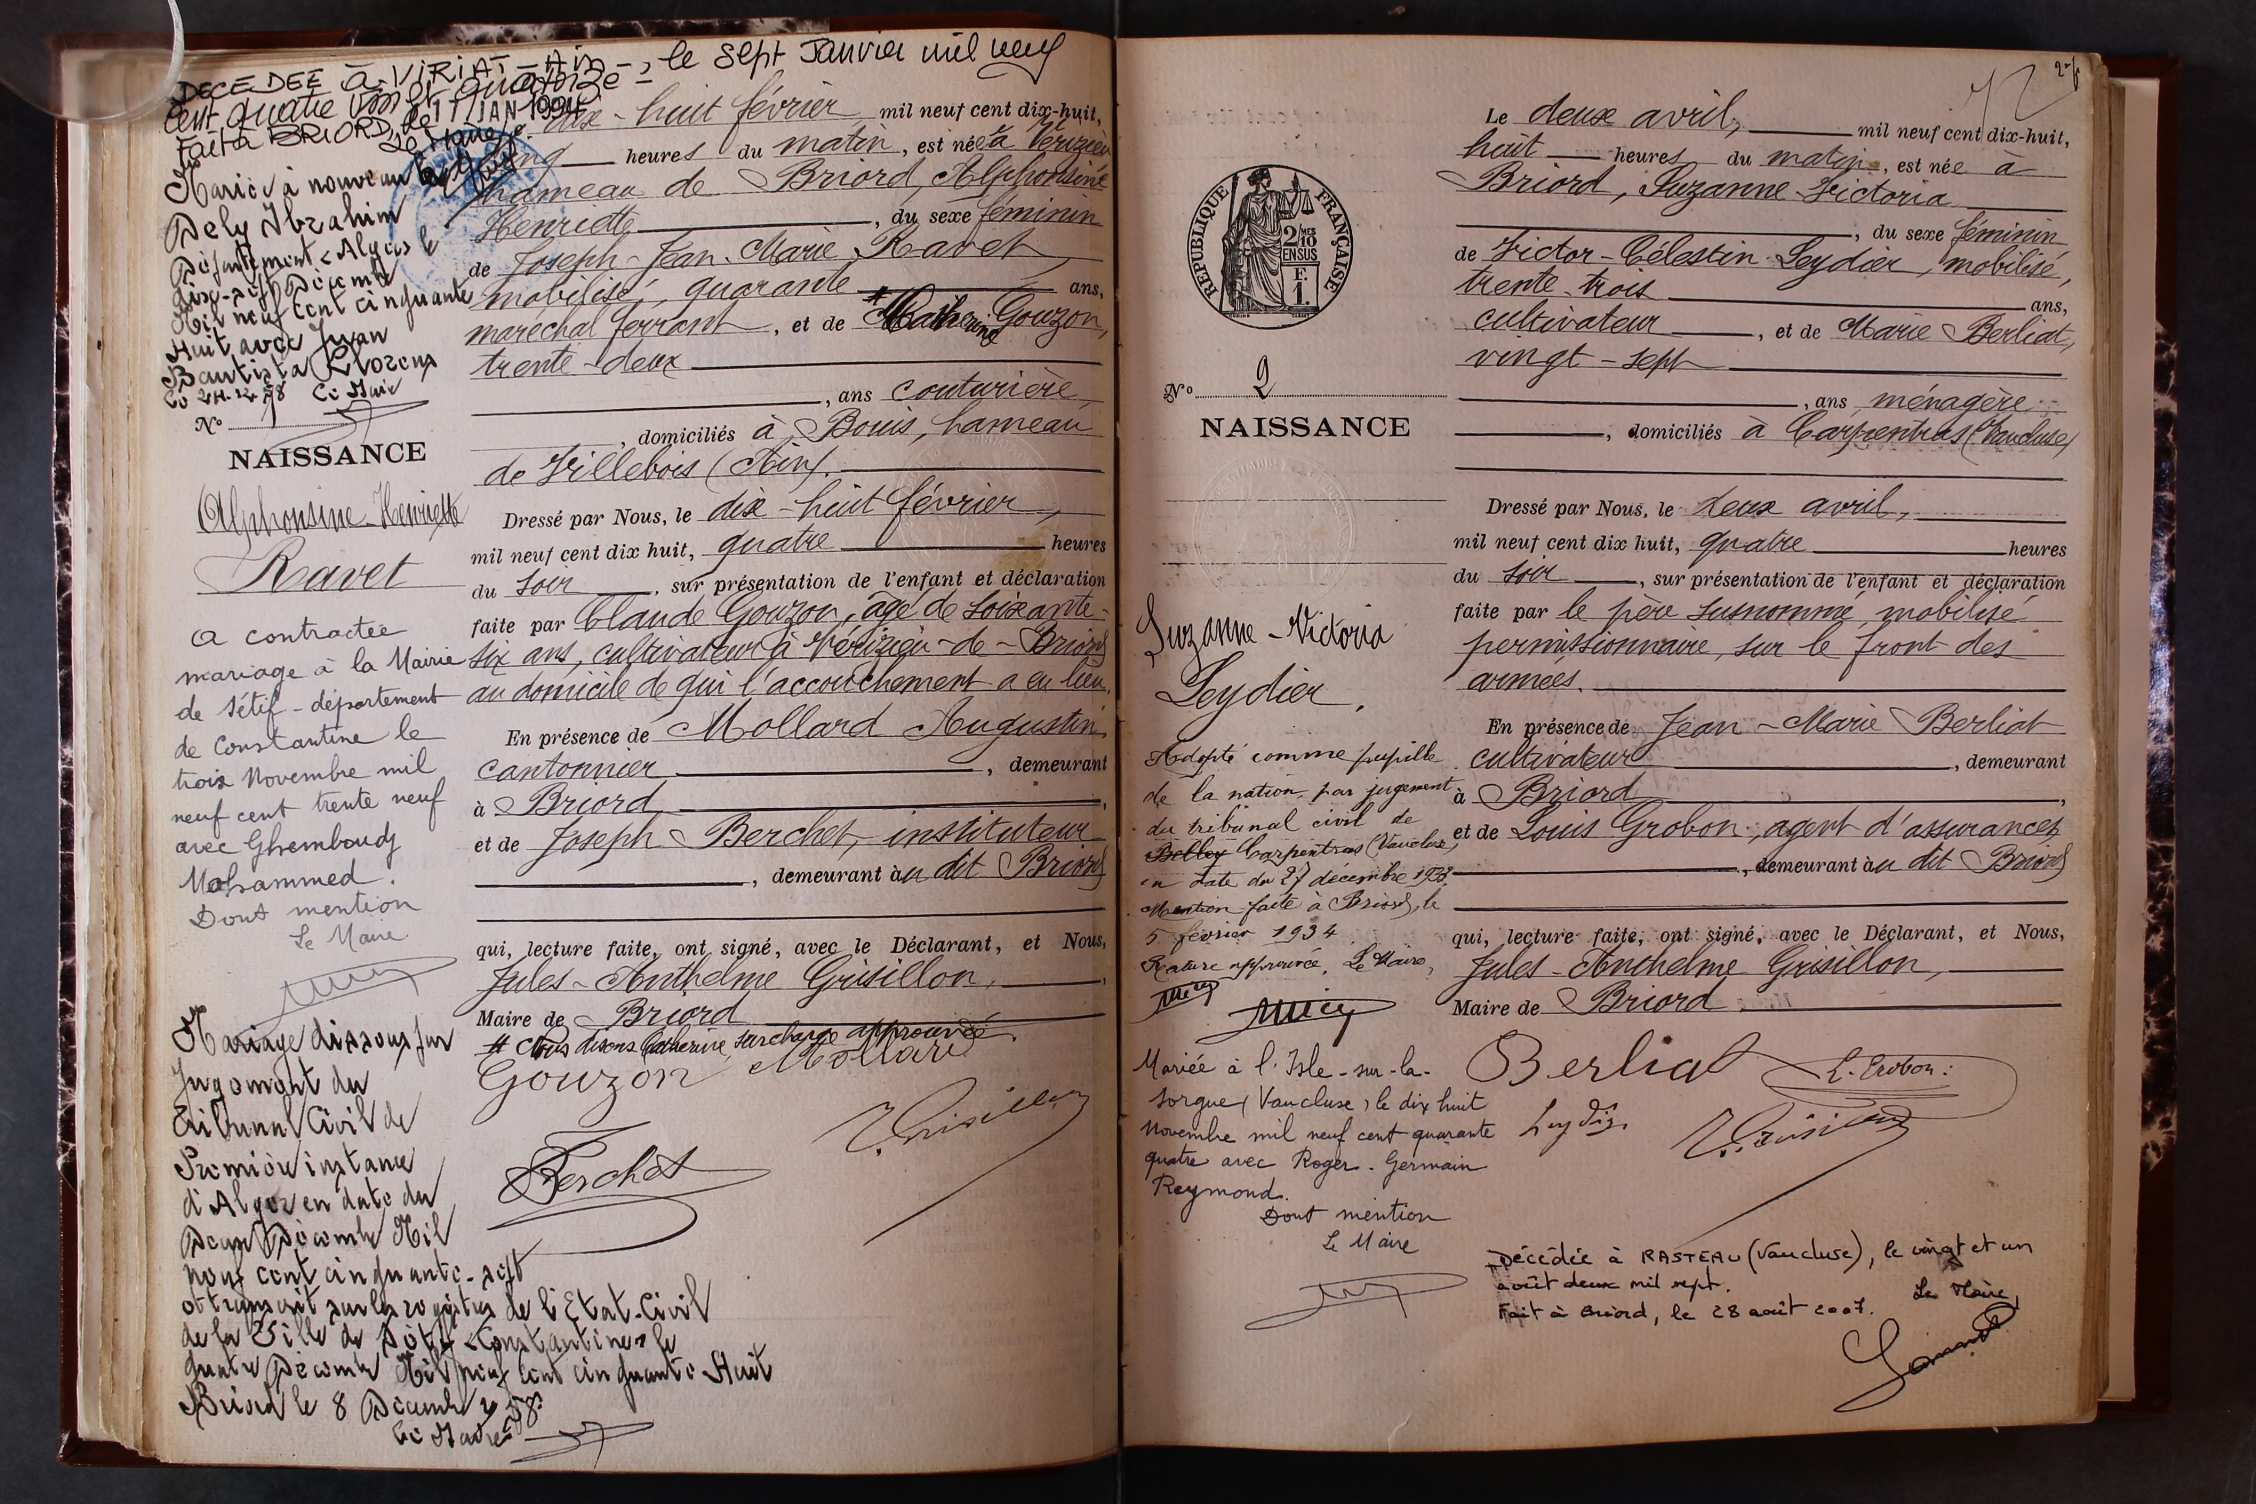 DECEDEE à VIRIAT - Ain - , le sept Janvier mil neuf
cent quatre vingt quatorze
Fait à BRIORD, le 11 JAN 1994
Le Maire
Mariée à nouveau
Dely Ibrahim
Département d'Alger le
dix-sept Décembre
Mil neuf cent cinquante
Huit avec Juan
Bautista Llorens
Le 24.12.58 Le Maire
No 1
NAISSANCE
Alphonsine-Henriette
Ravet
a contractée
mariage à la Mairie
de Sétif - département
de Constantine le
trois Novembre mil
neuf cent trente neuf
avec Ghemboudj
Mohammed.
Dont mention
Le Maire
Mariage dissous par
Jugement du
Tribunal Civil de
Première instance
d'Alger en date du
Deux Décembre Mil
neuf cent cinquante-sept
et transcrit sur les registres de l'Etat-Civil
de la Ville de Sétif (Constantine) le
quatre Décembre Mil neuf cent cinquante Huit
Briord le 8 Décembre 1958
Le Maire
dix-huit février, mil neuf cent dix-huit,
cinq heures du matin, est née à Vérizieu
hameau de Briord, Alphonsine
Henriette, du sexe féminin
de Joseph-Jean-Marie Ravet,
mobilisé, quarante ans,
maréchal ferrant, et de # Catherine Gouzon,
trente-deux
, ans couturière,
, domiciliés à Bouis, hameau
de Villebois (Ain).
Dressé par Nous, le dix-huit février,
mil neuf cent dix huit, quatre heures
du soir, sur présentation de l'enfant et déclaration
faite par Claude Gouzon, âgé de soixante-
six ans, cultivateur à Vérizieu-de-Briord
au domicile de qui l'accouchement a eu lieu.
En présence de Mollard Augustin
cantonnier, demeurant
à Briord,
et de Joseph Berchet, instituteur
, demeurant au dit Briord
qui, lecture faite, ont signé, avec le Déclarant, et Nous,
Jules-Anthelme Grisillon,
Maire de Briord
# Nous disons Catherine, surcharge approuvée.
Gouzon Mollard
Berchet
J. Grisillon
REPUBLIQUE FRANÇAISE
2/10 MES
EN SUS
F.
1.
No 2
NAISSANCE
Suzanne-Victoria
Leydier.
Adopté comme pupille
de la nation, par jugement
du tribunal civil de
Belley Carpentras (Vaucluse)
en date du 27 décembre 1933.
Mention faite à Briord, le
5 février 1934
Rature approuvée. Le Maire,
Mariée à l'Isle-sur-la-
Sorgue (Vaucluse) le dix huit
Novembre mil neuf cent quarante
quatre avec Roger-Germain
Reymond.
Dont mention
Le Maire
Le deux avril, mil neuf cent dix-huit,
huit heures du matin, est née à
Briord, Suzanne-Victoria
, du sexe féminin
de Victor-Célestin Leydier, mobilisé,
trente-trois ans,
cultivateur, et de Marie Berliat,
vingt-sept
, ans, ménagère
, domiciliés à Carpentras (Vaucluse)
Dressé par Nous, le deux avril,
mil neuf cent dix huit, quatre heures
du soir, sur présentation de l'enfant et déclaration
faite par le père susnommé, mobilisé
permissionnaire, sur le front des
armées.
En présence de Jean-Marie Berliat
cultivateur, demeurant
à Briord,
et de Louis Grobon, agent d'assurances,
, demeurant au dit Briord
qui, lecture faite, ont signé, avec le Déclarant, et Nous,
Jules-Anthelme Grisillon,
Maire de Briord.
Berliat L. Grobon
Leydier J. Grisillon
Décédée à RASTEAU (Vaucluse), le vingt et un
août deux mil sept.
Fait à Briord, le 28 août 2007. Le Maire,